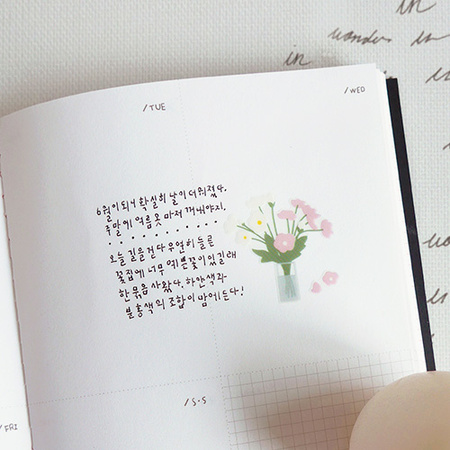 in
wonder in
in
/TUE
/WED
6월이 되니 확실히 날이 더워졌다.
주말에 여름옷 마저 꺼내야지.
오늘 길을 걷다 우연히 들른
꽃집에 너무 예쁜꽃이 있길래
한 묶음 사왔다. 하얀색과
분홍색의 조합이 맘에 든다!
/S·S
/FRI